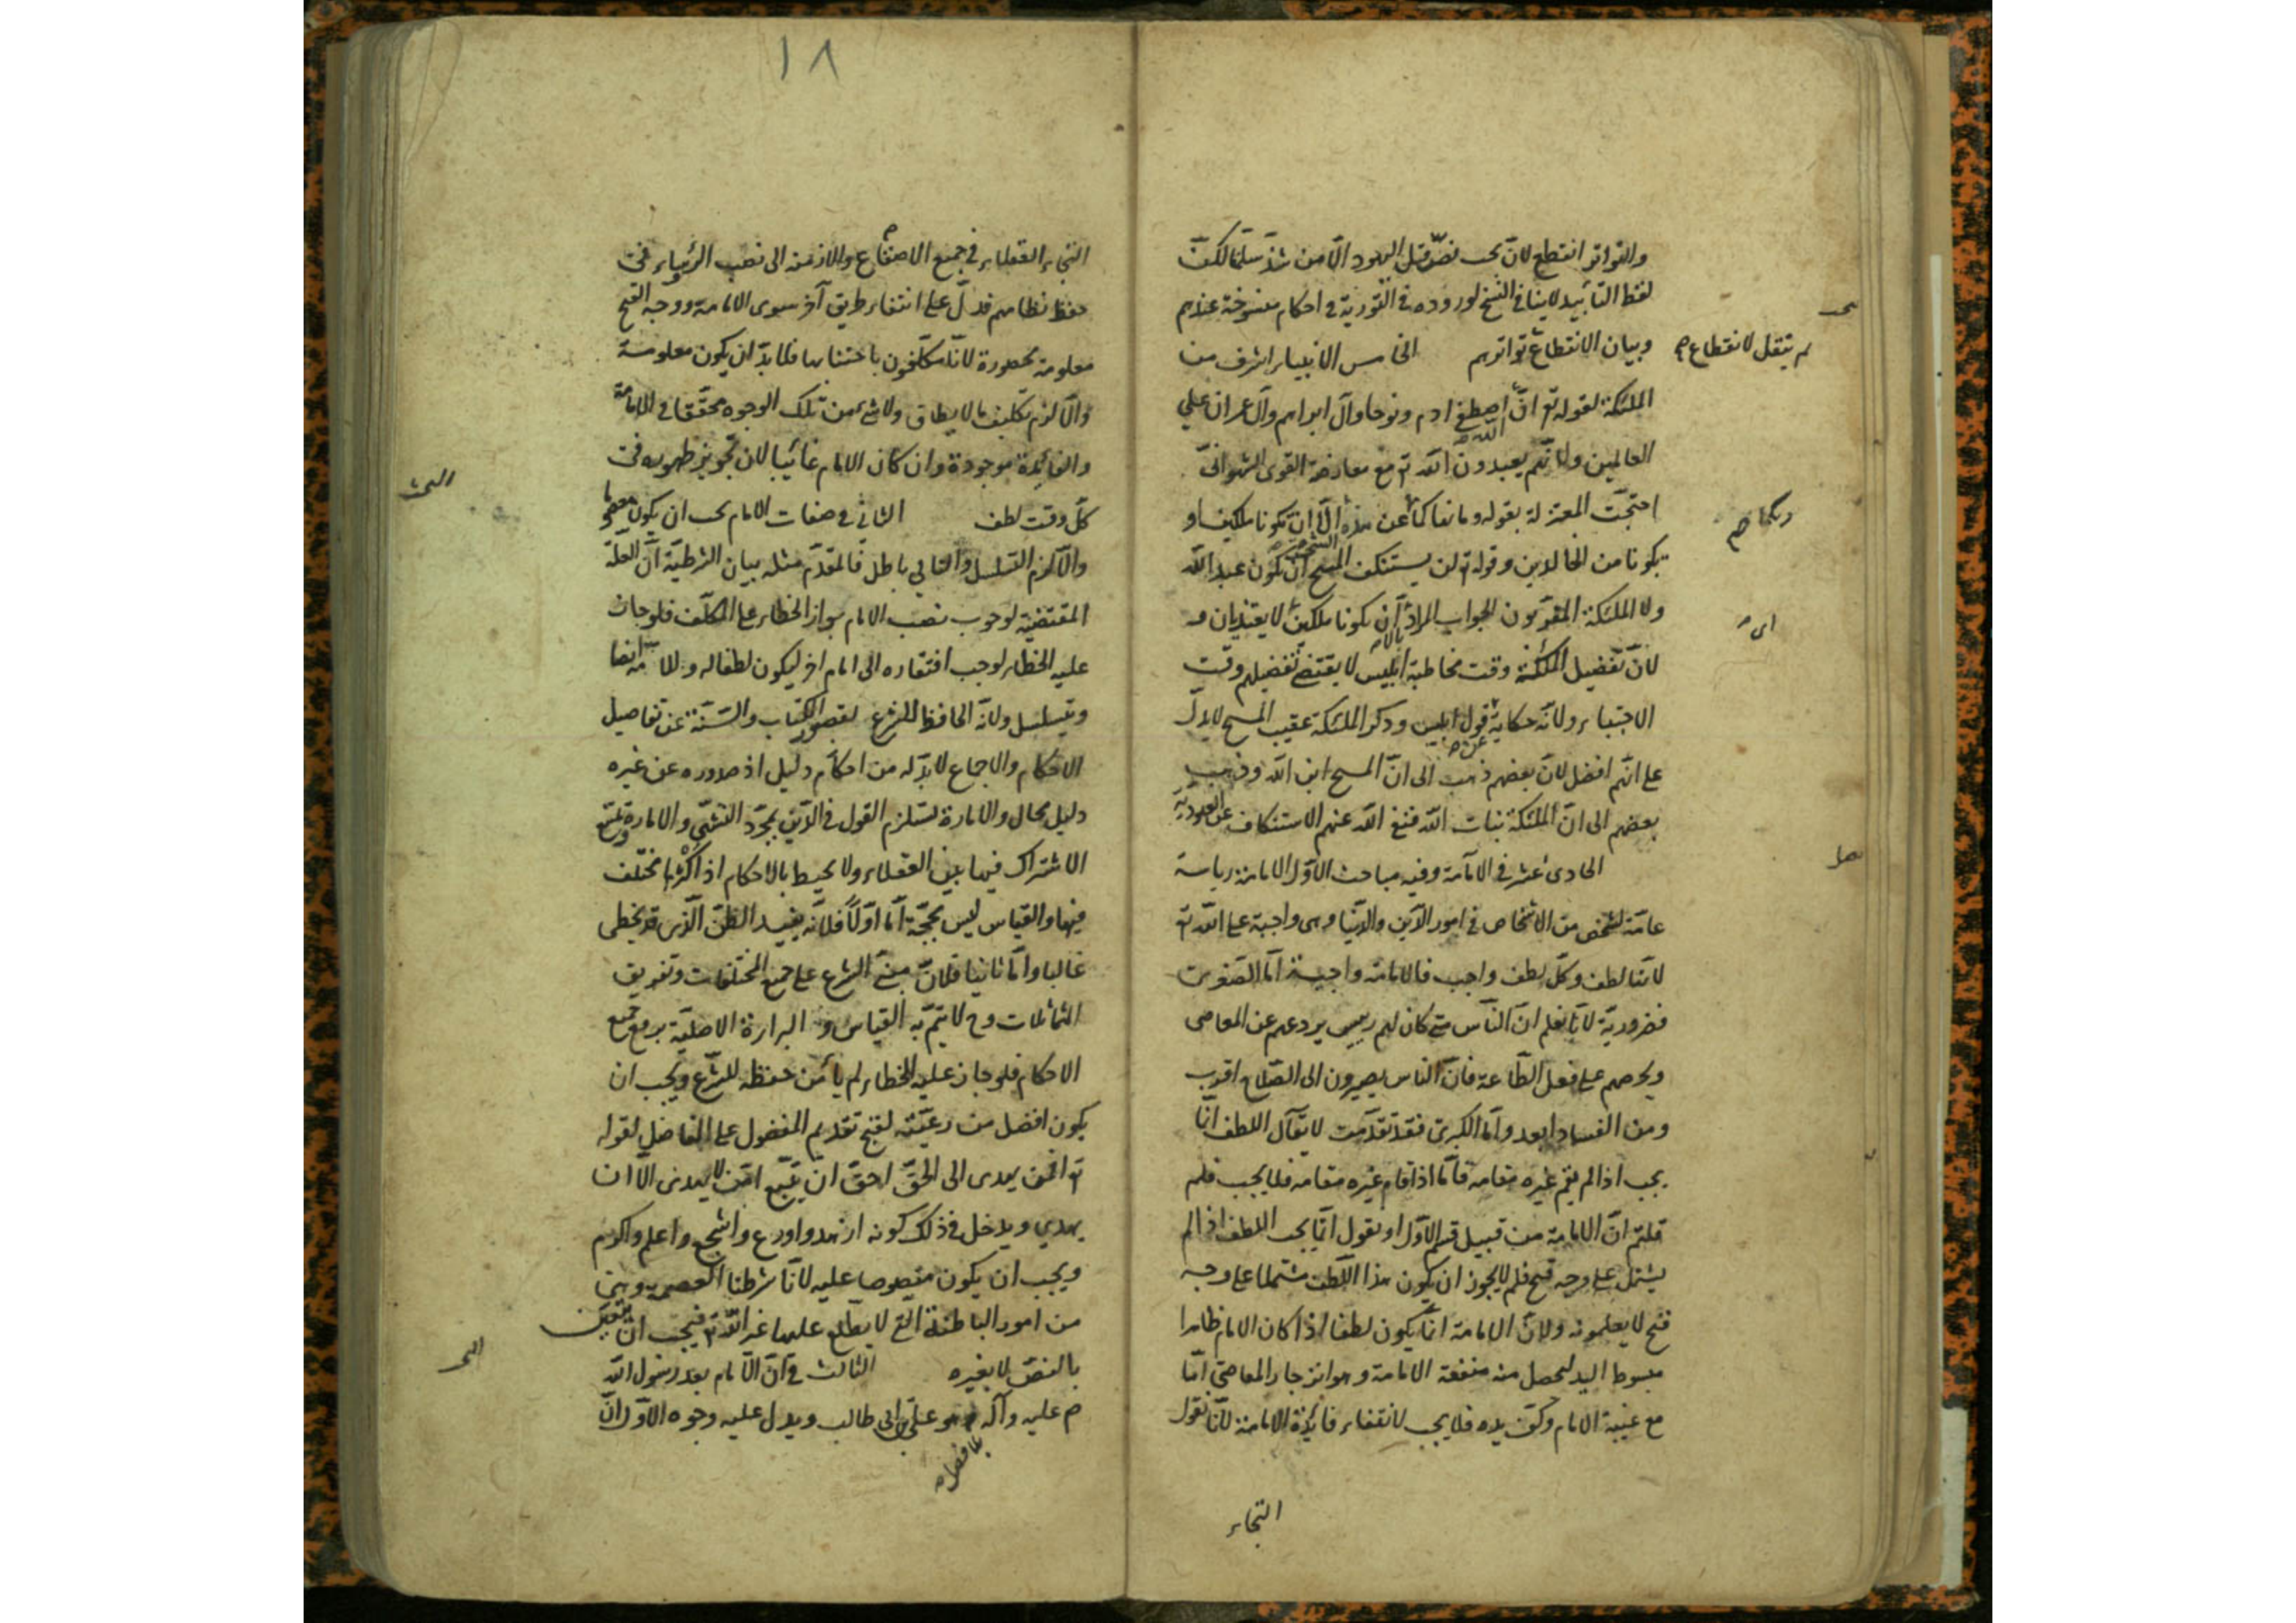 والتواتر انقطع لانّ بخت نصّر قتل اليهود الّا من شذّ سلّمنا لكنّ
لفظ التأبيد لا ينافي النسخ لوروده في التورية في احكام منسوخة عندهم
وبيان الانقطاع تواترهم الخامس الانبياء اشرف من
لم ينقل لانقطاع
الملئكة لقوله تع انّ اصطفى ادم ونوحا وآل ابراهيم وآل عمران على
الله
العالمين ولانّهم يعبدون الله تع مع معارضة القوى الشهوانيّ
احتجّت المعتزلة بقوله وما نهاكما عن هذه الّا ان تكونا ملكين او
ربكما
الشجرة
تكونا من الخالدين وقوله تع لن يستنكف المسيح ان يكون عبد الله
ولا الملئكة المقرّبون الجواب المراد ان يكونا ملكين لا يغتذيان
لانّ تفضيل الملئكة وقت مخاطبة ابليس لا يقتضي تفضيلهم وقت
الاجتباء ولانّه حكاية قول ابليس وذكر الملئكة عقيب المسيح لا يدلّ
عن
على انّهم افضل لانّ بعضهم ذهب الى انّ المسيح ابن الله وذهب
بعضهم الى انّ الملئكة بنات الله فنفى الله عنهم الاستنكاف عن العبودية
الحادى عشر في الامامة وفيه مباحث الاوّل الامامة رياسة
عامّة لشخص من الاشخاص في امور الدّين والدّنيا وهى واجبة على الله تع
لانّها لطف وكلّ لطف واجب فالامامة واجبة امّا الصّغرى
فضروريّة لانّا نعلم انّ النّاس متى كان لهم رييس يردعهم عن المعاصى
ويحرصهم على فعل الطّاعة فانّ الناس يصيرون الى الصّلاح اقرب
ومن الفساد ابعد وامّا الكبرى فقد تقدّمت لا يقال اللطف انّما
يجب اذا لم يقم غيره مقامه فامّا اذا قام غيره مقامه فلا يجب فلم
قلتم انّ الامامة من قبيل قسم الاوّل او نقول انّما يجب اللطف اذا لم
يشتمل على وجه قبح فلم لا يجوز ان يكون هذا اللّطف مشتملا على وجه
قبح لا يعلمونه ولانّ الامامة انّما يكون لطفا اذا كان الامام ظاهرا
مبسوط اليد ليحصل منه منفعة الامامة وهو انزجار المعاصى امّا
مع غيبة الامام وكفّ يده فلا يجب لانتفاء فائدة الامامة لانّا نقول
التجاء
١٨
التجاء العقلاء في جميع الاصقاع والازمنة الى نصب الرّؤساء في
حفظ نظامهم فدلّ على انتفاء طريق آخر سوى الامامة ووجه القبح
معلومة محصورة لانّا مكلّفون باجتنابها فلا بدّ ان يكون معلومة
والّا لزم تكليف ما لا يطاق ولا شيء من تلك الوجوه محقّقا في الامامة
والفائدة موجودة وان كان الامام غائبا لان تجويز ظهوره في
كلّ وقت لطف الثانى في صفات الامام يجب ان يكون معصوما
البحث
والّا لزم التسلسل والتالي باطل فالمقدّم مثله بيان الشرطيّة انّ العلّة
المقتضية لوجوب نصب الامام جواز الخطاء على المكلّف فلو جاز
عليه الخطاء لوجب افتقاره الى امام اخر ليكون لطفا له وللامة ايضا
ويتسلسل ولانّه الحافظ للشرع لقصور الكتاب والسّنّة عن تفاصيل
الاحكام والاجماع لا بدّ له من احكام دليل اذ صدوره عن غيره
دليل محال والامارة تستلزم القول في الدّين بمجرّد التشهّي والامارة يمتنع
الاشتراك فيها بين العقلاء ولا يحيط بالاحكام اذ اكثرها مختلف
فيها والقياس ليس بحجّة امّا اوّلا فلانّه يفيد الظنّ الّذى قد يخطى
غالبا وامّا ثانيا فلانّ مبنى الشرع على جمع المختلفات وتفريق
المتماثلات وح لا يتمّ به القياس و البراءة الاصليّة يرفع جميع
الاحكام فلو جاز عليه الخطاء لم يأمن حفظه للشّرع ويجب ان
يكون افضل من رعيّته لقبح تقديم المفضول على الفاضل لقوله
تع افمن يهدى الى الحقّ احقّ ان يتّبع امّن لا يهدى الّا ان
يهدي ويدخل في ذلك كونه ازهد واورع واشجع واعلم واكرم
ويجب ان يكون منصوصا عليه لانّا شرطنا العصمة وهى
من امور الباطنة الّتي لا يطّلع عليها غير الله تع فيجب ان يتعيّن
بالنصّ لا بغيره الثالث في انّ الامام بعد رسول الله
ص عليه وآله هو علىّ بن ابى طالب ويدل عليه وجوه الاوّل انّ
بلا فصل